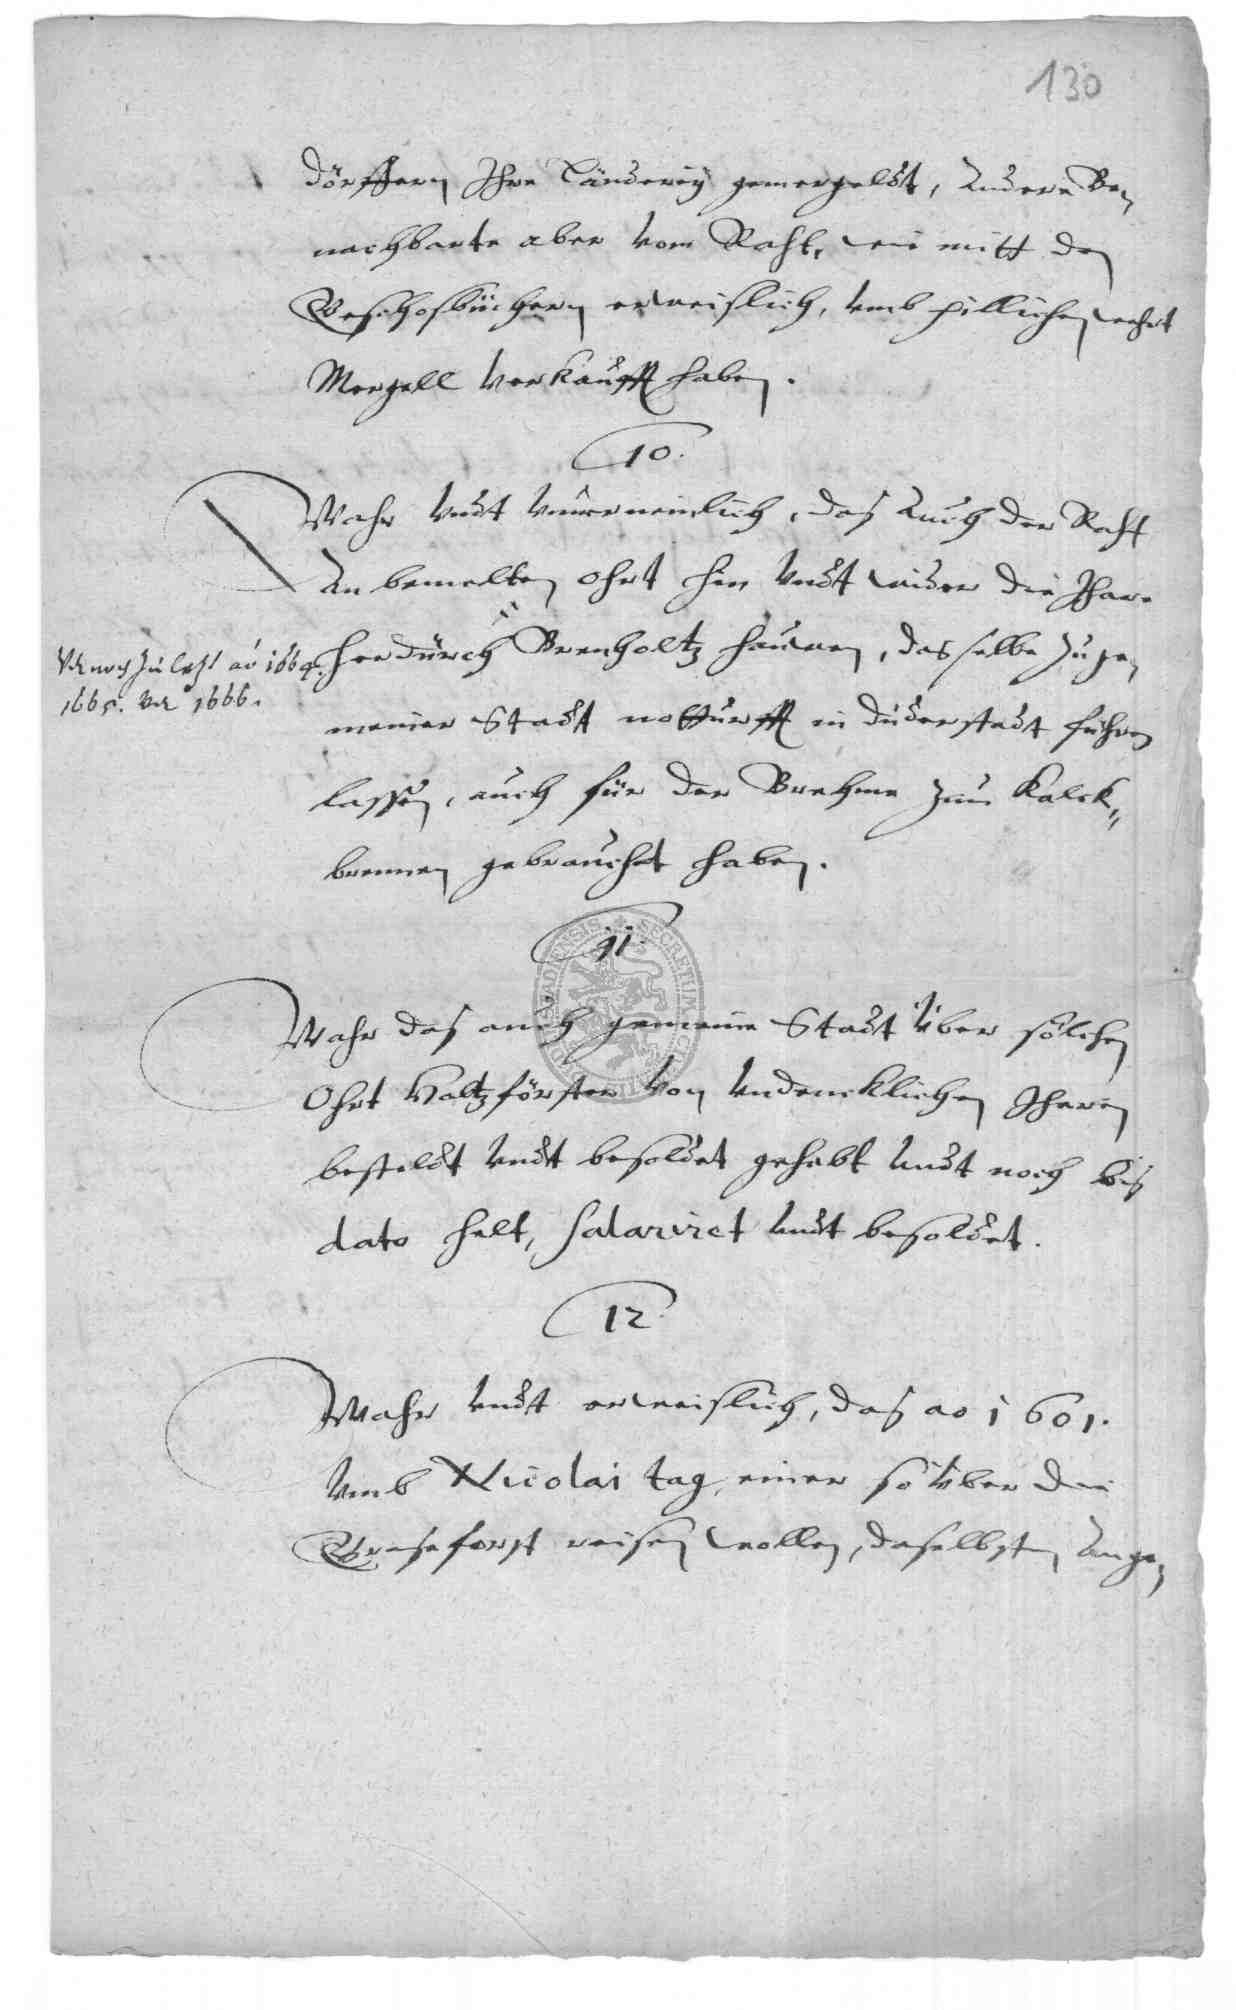 130
dörffern Ihre Länderey gemergeldt, Andere Be„
nachbarte aber vom Raht, wie mitt den
Geschosbüchern erweislich, umb pillichen wehrt
Mergell verkaufft haben.
10.
Wahr undt unverneinlich, das Auch der Raht
An bemelten ohrt hin undt wider die Jhare
herdurch " Brenholtz hauwen, dasselbe zu ge„
meiner Stadt notturfft in Duderstadt führen
lassen, auch für der Brehme zum Kalck„
brennen gebrauchet haben.
Vnd noch zu letzt ao 1664.
1665. vnd 1666.
11.
Wahr das auch gemeine Stadt über solchen
Ohrt Holtzförster von undencklichen Jharen
besteldt undt besoldet gehabt undt noch bis
dato helt, salariret undt besoldet.
12.
Wahr undt erweislich, das ao 1601.
umb Nicolai tag, einer so über die
reisen wollen, daselbsten Ange„
SECRETUM